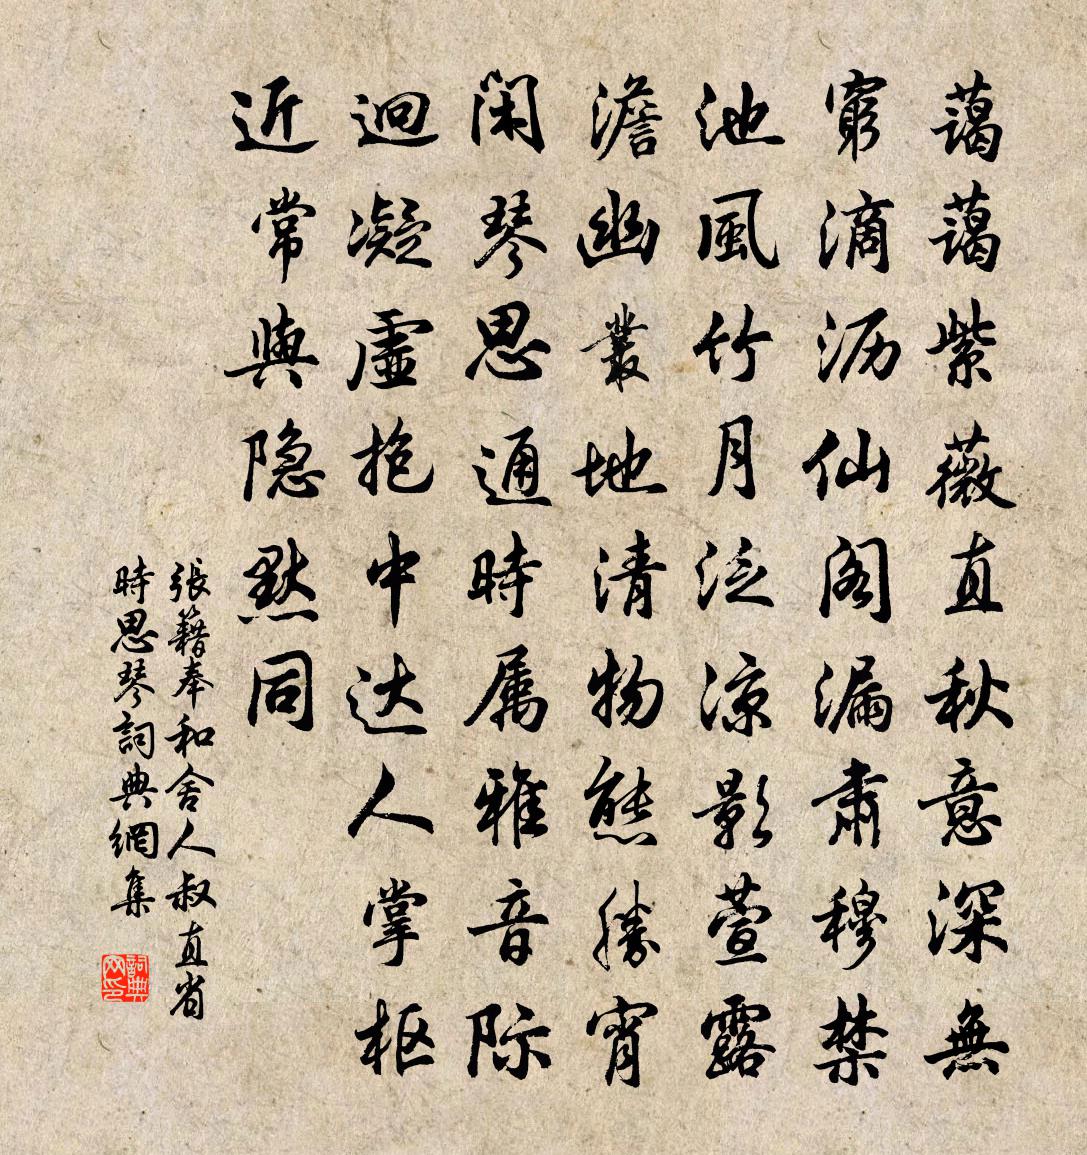 藹藹紫薇直秋意深無
窮滴沥仙阁漏肅穆禁
池風竹月泛凉影萱露
澹幽叢地清物態勝宵
閑琴思通時属雅音际
迥凝虛抱中达人掌枢
近常與隐默同
張籍奉和舍人叔直省
時思琴詞典網集
詞典网印